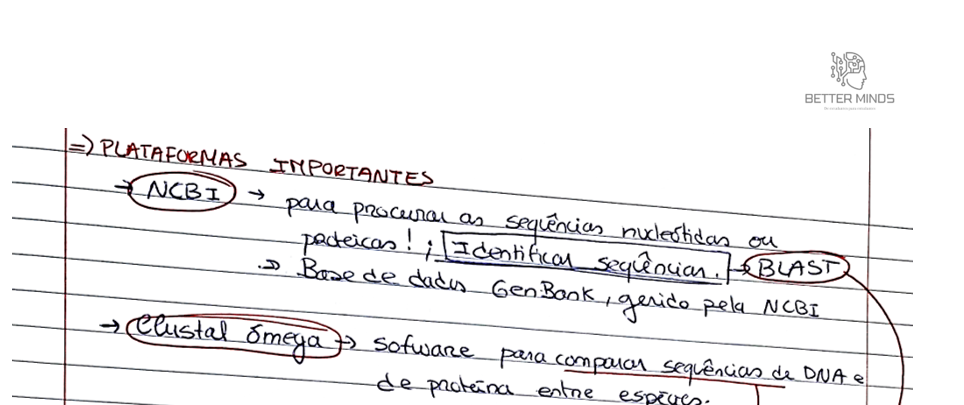 BETTER MINDS
=> PLATAFORMAS IMPORTANTES
→ NCBI → para procurar as sequências nucleótidas ou
proteicas! ; Identificar sequências. → BLAST
→ Base de dados GenBank, gerido pela NCBI
→ Clustal ômega → sofware para comparar sequências de DNA e
de proteína entre espécies.